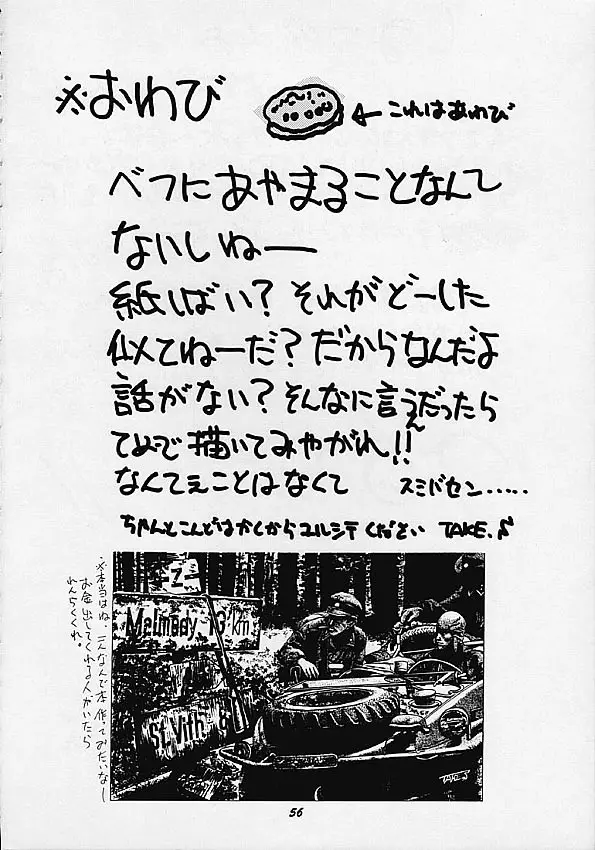 ※おわび
←これはあわび
べつにあやまることなんて
ないしねー
紙しばい？それがどーした
似てねーだ？だからなんだよ
話がない？そんなに言うんだったら
てめーで描いてみやがれ!!
なんてぇことはなくて スミマセン……
ちゃんとこんどはかくからユルシテください TAKE.
※本当はね、こんなんで本作ってみたいなー
お金出してくれる人がいたら
れんらくくれ。
Z
Malmedy 13 km
St. Vith
TAKE.
56